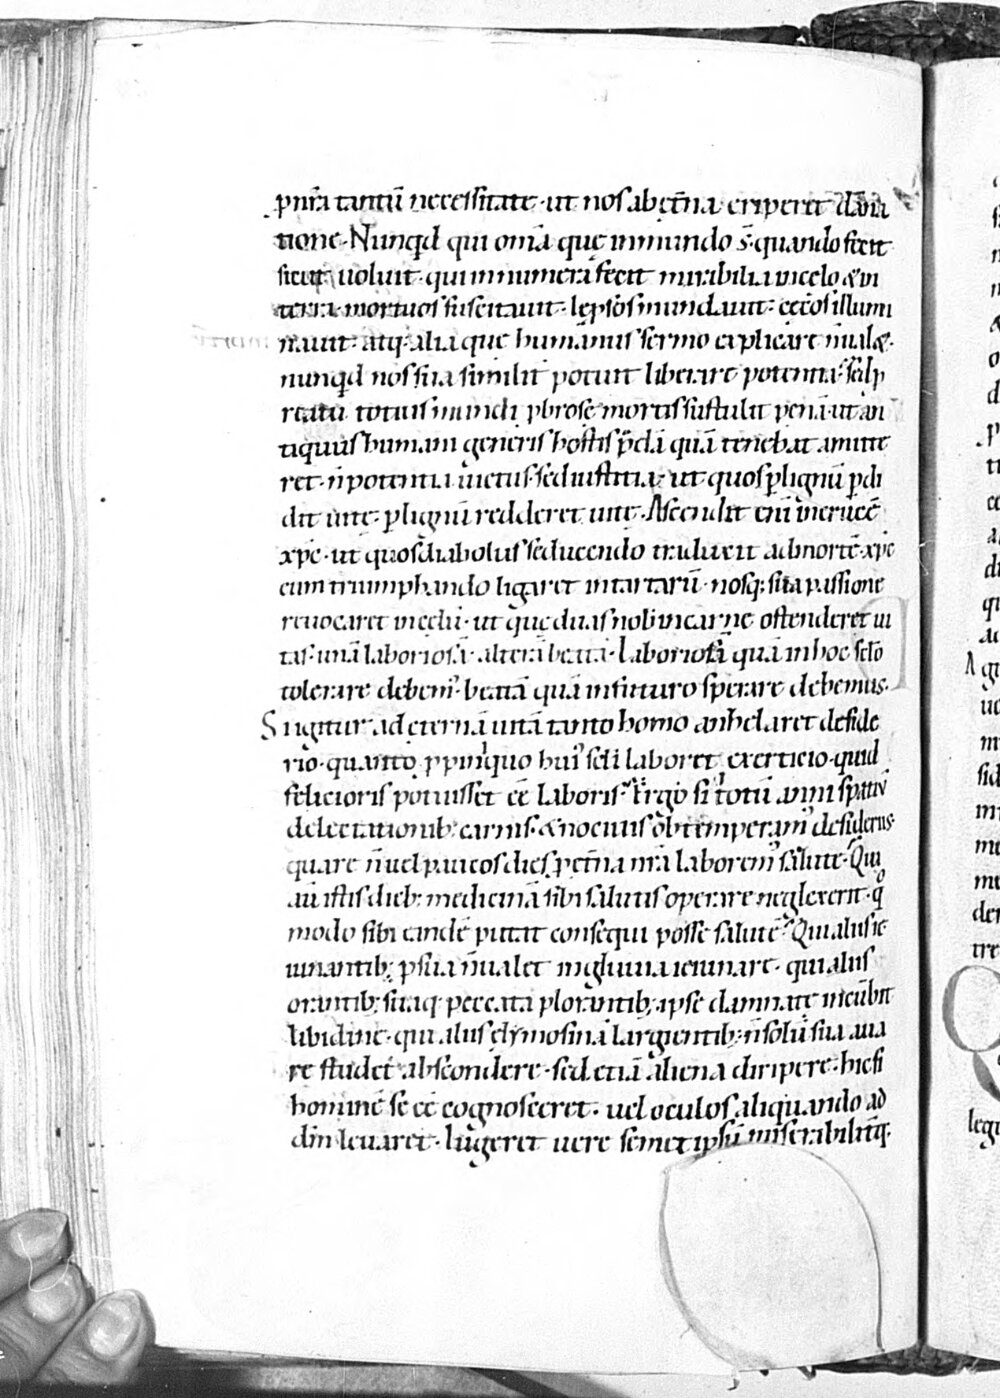 p nr̄a tantū necessitate · ut nos ab et̄na eriperet dāna
tione · Nunqd qui om̄a que in mundo s̄ · quando fecit
sicut uoluit · qui innumera fecit mirabilia in celo & in
terra · mortuos suscitauit · lep̄sos mundauit · cecos illumi
nauit · atq; alia que humanus sermo explicare n̄ ualet ·
nunqd nos sua similit potuit liberare potentia · sed p
reatu totius mundi p̱brose mortis sustulit penā · ut an
tiquus humani generis hostis p̄dā quā tenebat amitte
ret · n̄ potentia uictus · sed iustitia · ut quos p̱ lignū p̱di
dit uite · p̱ lignū redderet uite · Ascendit eni in crucē
xp̄c · ut quos diabolus seducendo traduxit ad mortē · xp̄c
eum triumphando ligaret in tartarū · nosq; sua passione
reuocaret in celū · ut que duas nob in carne ostenderet ui
tas · unā laboriosā · alterā beatā · Laboriosā quā in hoc sc̄lo
tolerare debem̛ · beatā quā in futuro sperare debemus ·
Si igitur ad eternā uitā tanto homo anhelaret deside
rio · quanto p̱pinquo hui̛ scl̄i laboret exercicio · quid
felicioris potuisset eē laboris · Ergo si totū anni spatiū
delectationib; carnis · & nociuis obtemperam̛ desideriis ·
quare n̄ uel paucos dies p̱ et̄na nr̄a laborem̛ salute · Qui
aū istis dieb; medicinā sibi salutis operare neglexerit · qo
modo sibi eandē putat consequi posse salutē · Qui aliis ie
iunantib; p sua n̄ ualet ingluuia ieiunare · qui aliis
orantib; suaq; peccata plorantib; ipse damnate incūbit
libidine · qui aliis elymosinā largientib; n̄ solū sua aua
re studet abscondere · sed etiā aliena diripere · hic si
hominē se eē cognosceret · uel oculos aliquando ad
dn̄m leuaret · lugeret uere semet ipsū miserabilitq;